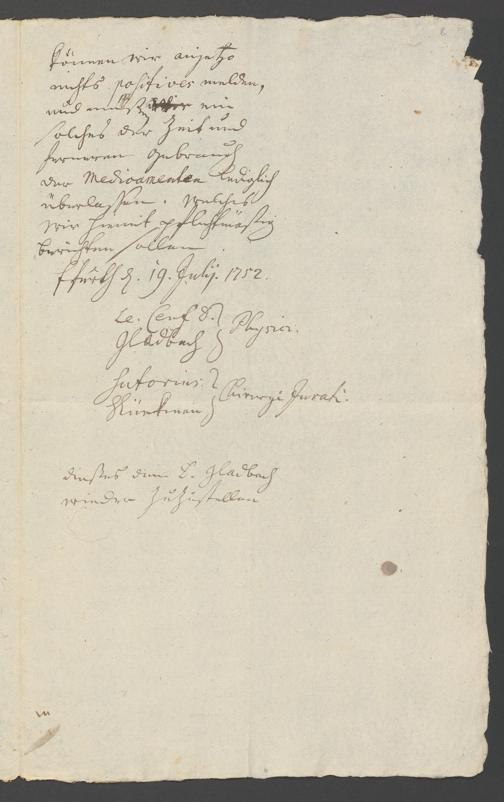 können wir anjetzo
nichts positives melden,
und müßen ein
solches der Zeit und
ferneren Gebrauch
der Medicamenten lediglich
überlassen. welches
wir hiemit pflichtmäßig
berichten sollen.
ffurth d. 19. July. 1752.
Le Cerf D. Physici.
Gladbach
Sutorius Chirurgi Jurati.
dießes dem D. Gladbach
wieder zuzustellen